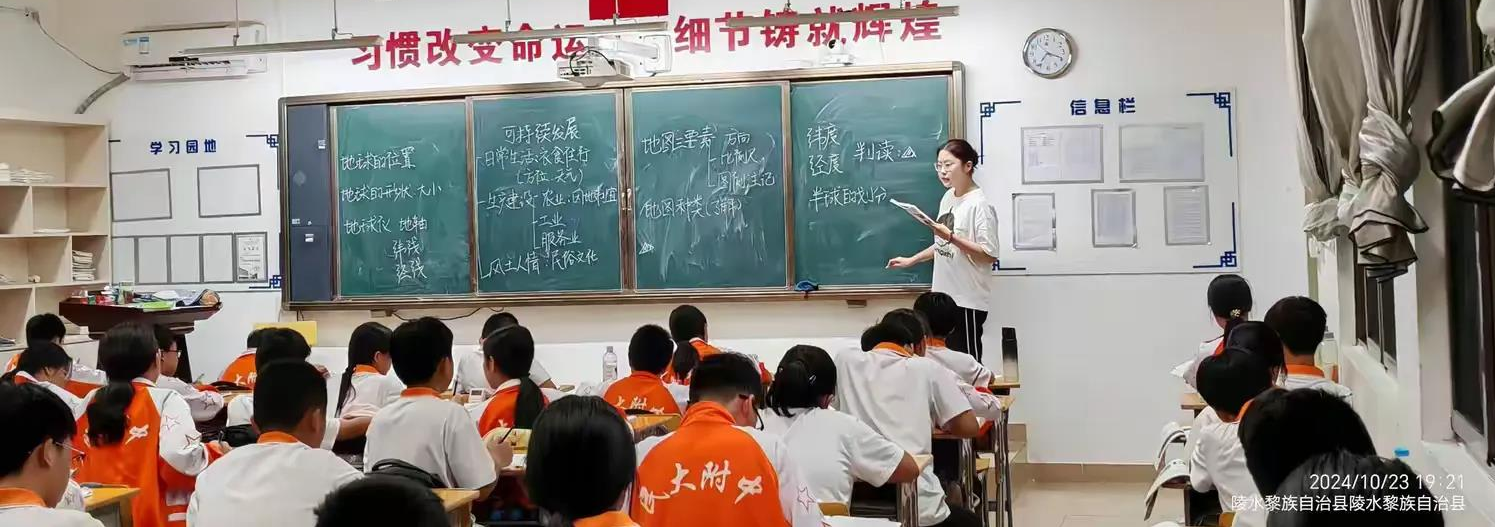 习惯改变命运 细节铸就辉煌
学习园地
信息栏
地球的位置
地球的形状 大小
地球仪 地轴
纬线
经线
可持续发展
日常生活:衣食住行
(方位、天气)
生产建设:农业:因地制宜
工业
服务业
风土人情:民俗文化
地图三要素 方向
比例尺
图例注记
地图种类(了解)
纬度
经度 判读:
半球的划分
大附中
2024/10/23 19:21
陵水黎族自治县陵水黎族自治县